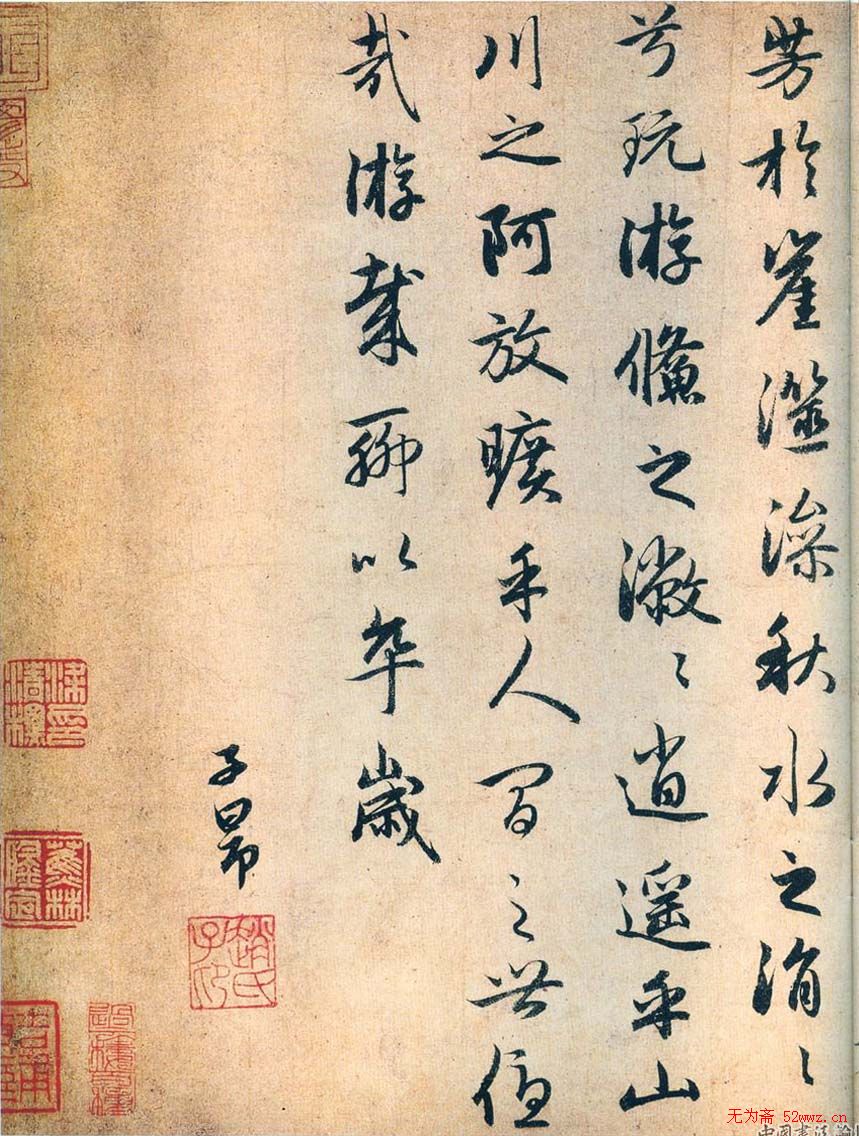 芳於崖澨澡秋水之涓〻
兮玩游鯈之潎〻逍遥乎山
川之阿放曠乎人間之世優
哉游哉聊以卒歲
子昂
趙氏子昂
蕉林
无为斋 52wwz.cn